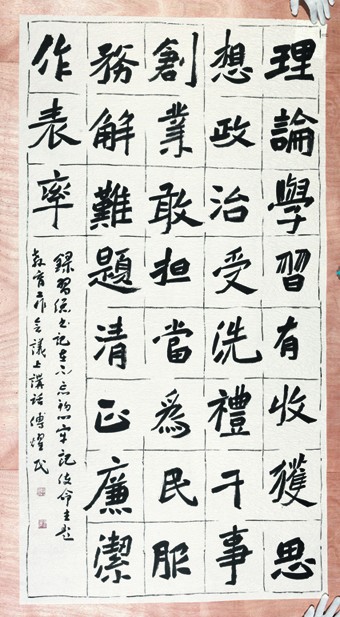 理論學習有收獲思
想政治受洗禮干事
創業敢担當爲民服
務解難題清正廉潔
作表率
錄習總书記在不忘初心牢記使命主題
教育工作會議上講話 傅燿民